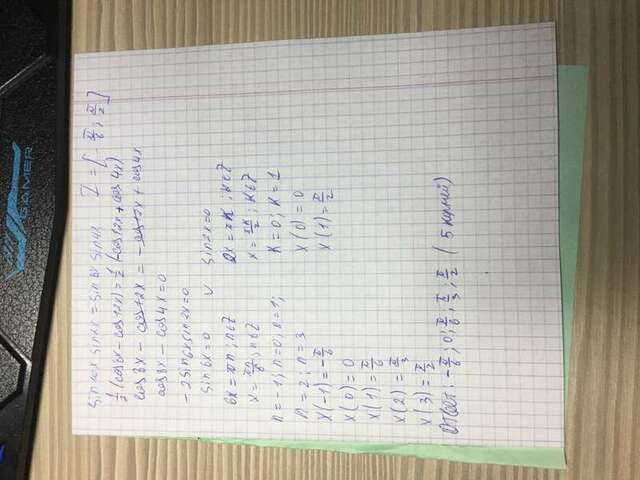 sin 10x sin 2x = sin 8x sin 4x    I = [-π/6 ; π/2]
1/2 (cos 8x - cos 12x) = 1/2 (-cos 12x + cos 4x)
cos 8x - cos 12x = - cos 12x + cos 4x
cos 8x - cos 4x = 0
- 2 sin 6x sin 2x = 0
sin 6x = 0    ∨    sin 2x = 0
6x = πn ; n∈Z    2x = πk ; k∈Z
x = πn/6 ; n∈Z    x = πk/2 ; k∈Z
n = -1 ; n = 0 ; n = 1 ;    k = 0 ; k = 1
n = 2 ; n = 3    x(0) = 0
x(-1) = -π/6    x(1) = π/2
x(0) = 0
x(1) = π/6
x(2) = π/3
x(3) = π/2
Ответ: -π/6 ; 0 ; π/6 ; π/3 ; π/2 (5 корней)
GAMER